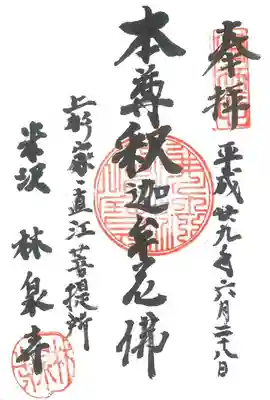 奉拝
平成廿九年六月二十八日
本尊釈迦牟尼佛
上杉家直江菩提所
米沢 林泉寺